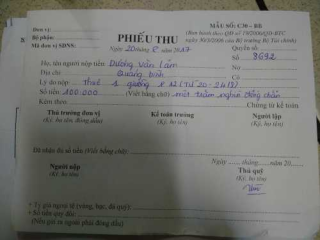 Đơn vị:
Bộ phận:
Mã đơn vị SDNS:
PHIẾU THU
Ngày 20 tháng 8 năm 2017
MẪU SỐ: C30 - BB
(Ban hành theo QĐ số 19/2006/QĐ-BTC
ngày 30/3/2006 của Bộ trưởng Bộ Tài chính)
Quyển số:
Số: 3692
Họ, tên người nộp tiền: Dương Văn Lâm
Địa chỉ: Quảng Bình
Lý do nộp: Thuê 1 giường
Số tiền: 100.000 (Viết bằng chữ) một trăm nghìn đồng chẵn
Kèm theo: Chứng từ kế toán
Thủ trưởng đơn vị
(Ký, họ tên, đóng dấu)
Kế toán trưởng
(Ký, họ tên)
Người lập
(Ký, họ tên)
Đã nhận đủ số tiền (Viết bằng chữ)
Ngày ...... tháng ..... năm 20.....
Người nộp
(Ký, họ tên)
Thủ quỹ
(Ký, họ tên)
+ Tỷ giá ngoại tệ (vàng, bạc, đá quý)
+ Số tiền quy đổi
(Liên gửi ra ngoài phải đóng dấu)